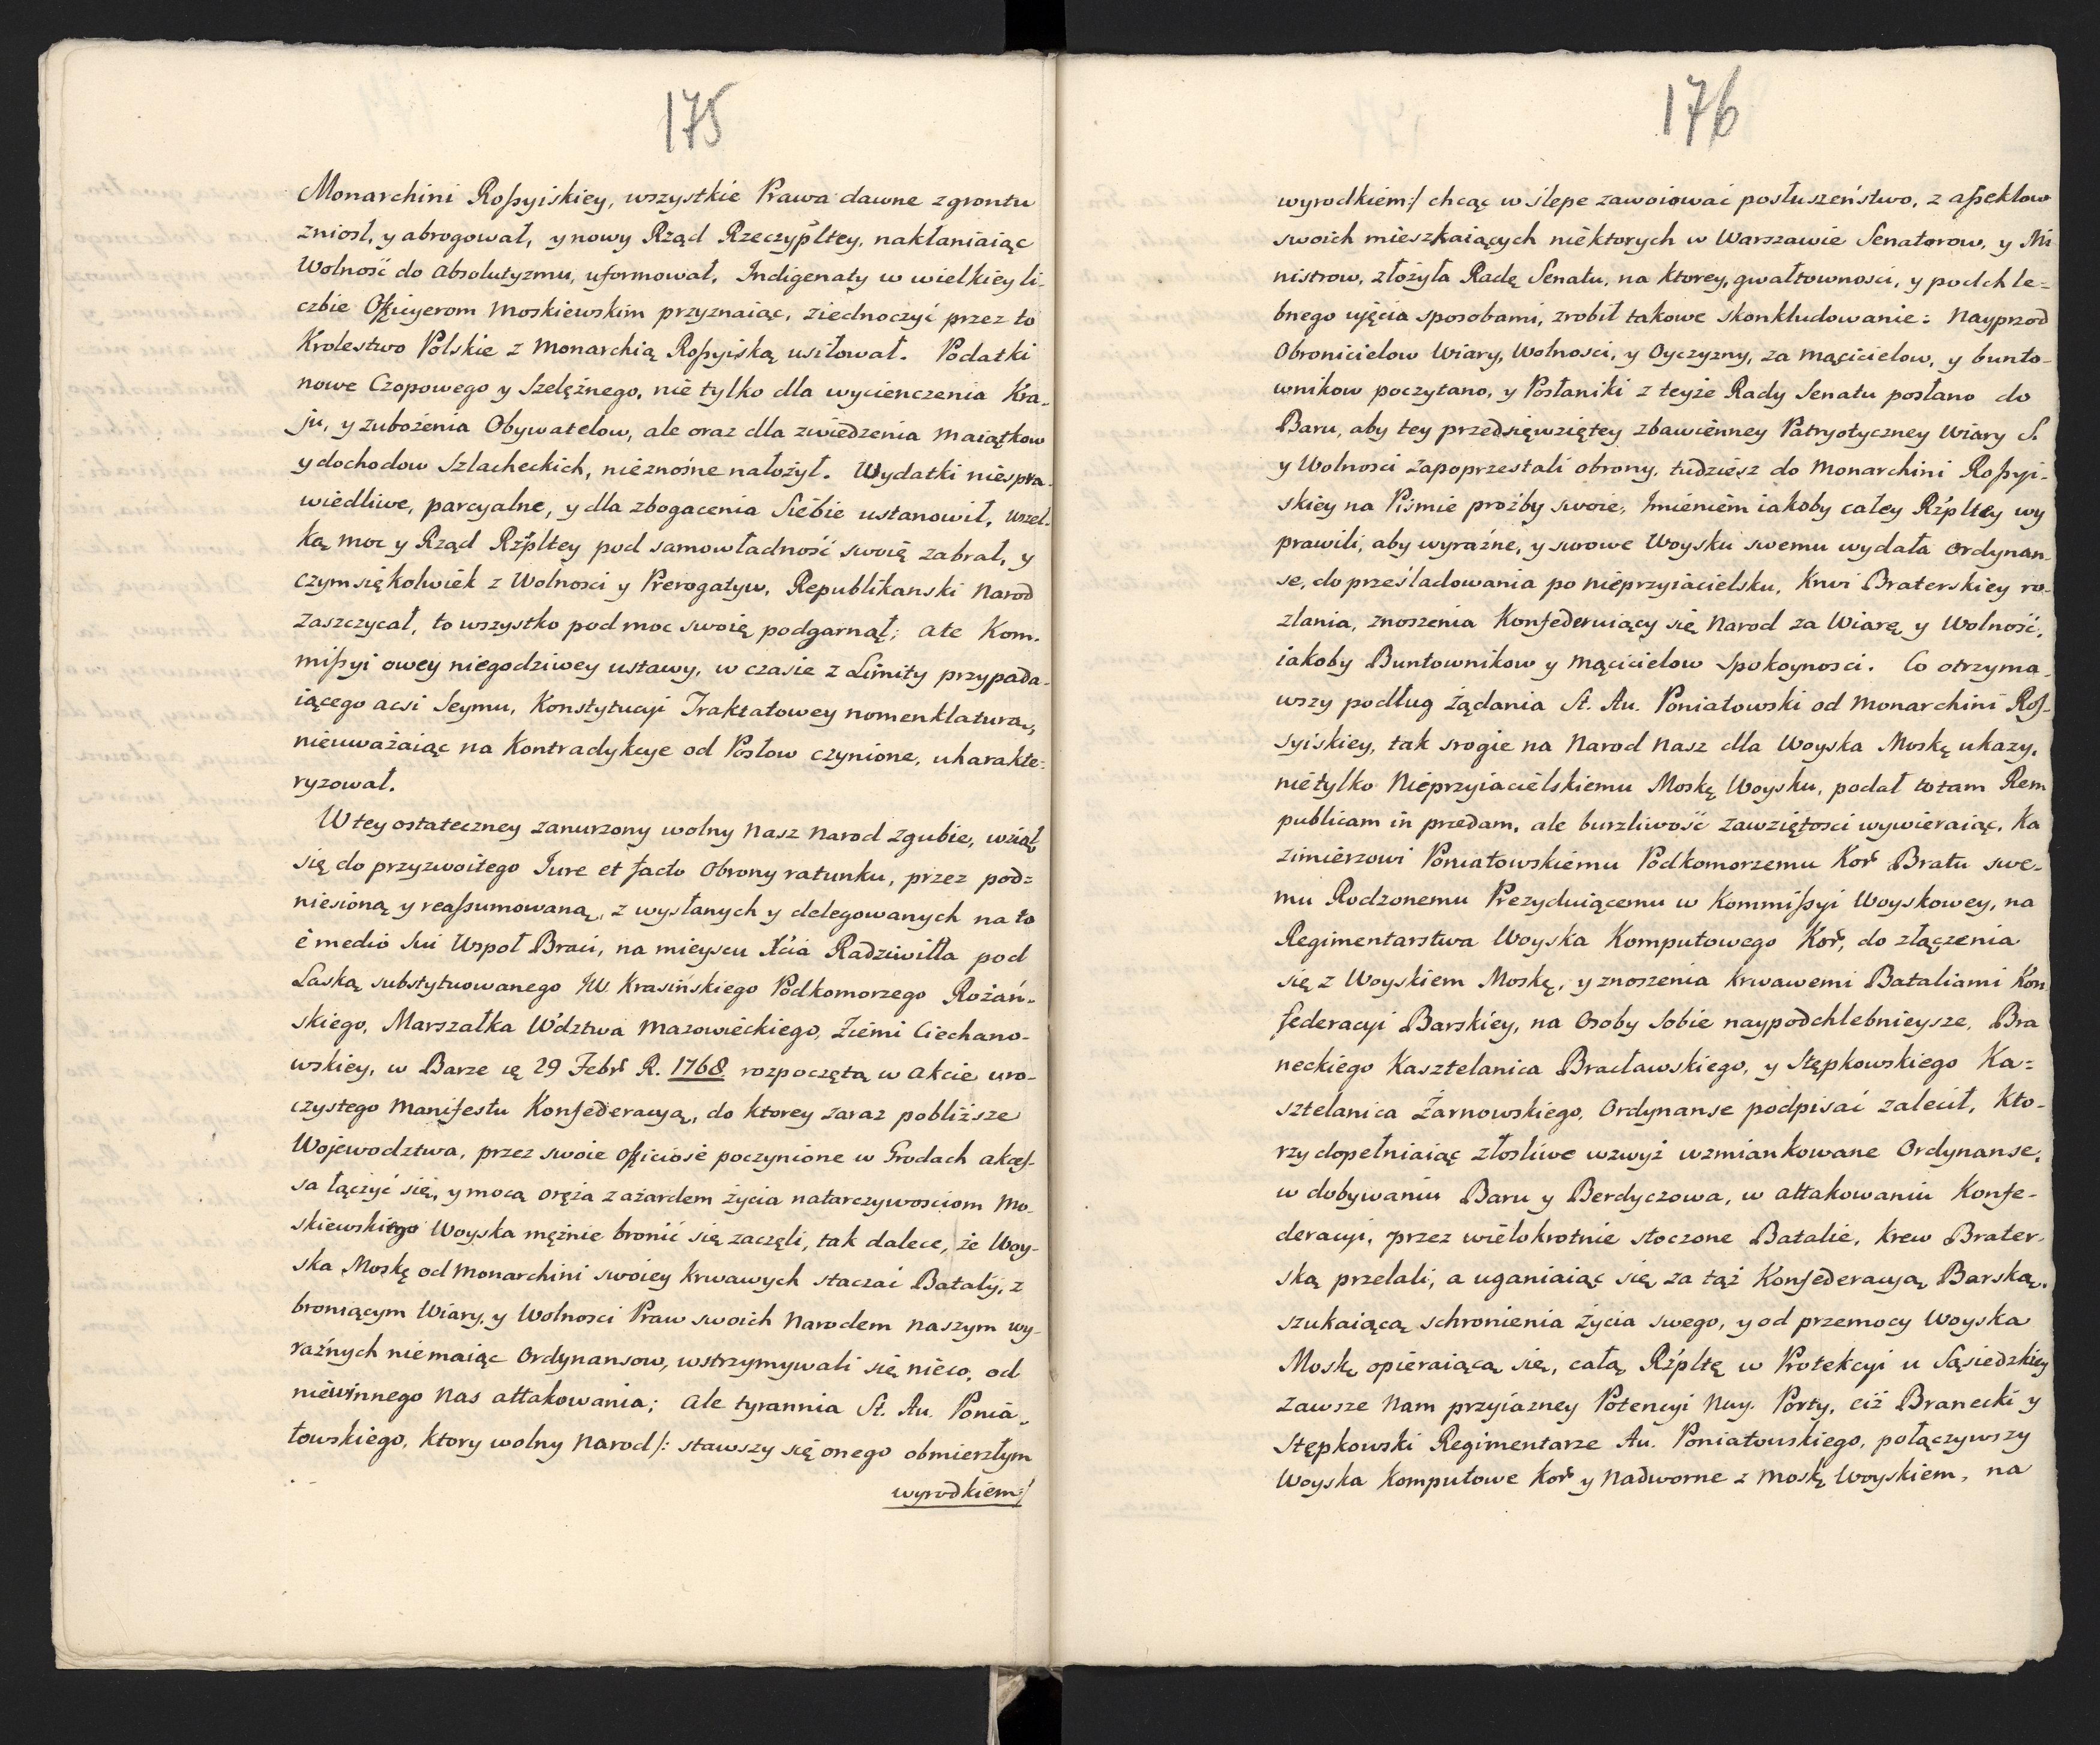 175
Monarchini Roßyiskiey, wszystkie Prawa dawne zgrontu
zniosł, y abrogował, y nowy Rząd Rzeczypltey, nakłaniaiąc
Wolność do Absolutyzmu, uformował, Indigenaty w wielkiey li-
czbie Officyerom Moskiewskim przyznaiąc, ziednoczyć przez to
Krolestwo Polskie z Monarchią Roßyiską usiłował. Podatki
nowe Czopowego y Szelężnego, nie tylko dla wycienczenia Kra-
ju, y zubożenia Obywatelow, ale oraz dla zwiedzenia Maiątkow
y dochodow Szlacheckich, nieznośne nałożył. Wydatki niespra-
wiedliwe, parcyalne, y dla zbogacenia Siebie ustanowił, wszel-
ką moc y Rząd Rzpltey pod samowładność swoię zabrał, y
czym siękolwiek z Wolnosci y Prerogatyw, Republikanski Narod
zaszczycał, to wszystko pod moc swoię podgarnął; ate Kom-
mißyi owey niegodziwey ustawy, w czasie z Limity przypada-
iącego acsi Seymu, Konstytucyi Traktatowey nomenklaturą,
nieuważaiąc na Kontradykcye od Posłow czynione, uharakte-
ryzował.
W tey ostateczney zanurzony wolny Nasz Narod zgubie, wziął
się do przyzwoitego Jure et facto Obrony ratunku, przez pod=
niesioną y reaßumowaną, z wysłanych y delegowanych na to
è medio sui Uspoł Braci, na mieyscu Xcia Radziwiłła pod
Laską substytuowanego JW. Krasińskiego Podkomorzego Rożań-
skiego, Marszałka Wdztwa Mazowieckiego, Ziemi Ciechano-
wskiey, w Barze ię 29 Febr R. 1768 rozpoczętą w Akcie uro-
czystego Manifestu Konfederacyą, do ktorey zaraz pobliższe
Wojewodztwa, przez swoie officiose poczynione w Grodach akceß-
sa łączyć się, y mocą oręża z ażardem życia natarczywosciom Mo-
skiewskiego Woyska mężnie bronić się zaczęli, tak dalece, że Woy-
ska Moskę od Monarchini swoiey krwawych staczać Bataly, z
broniącym Wiary, y Wolnosci Praw swoich Narodem naszym wy-
raźnych niemaiąc Ordynansow, wstrzymywali się nieco, od
niewinnego Nas attakowania; Ale tyrannia St. Au. Ponia-
towskiego, ktory wolny Narod /: stawszy się onego obmierzłym
wyrodkiem:/
176
wyrodkiem:/ chcąc w slepe zawoiować posłuszeństwo, z aßektow
swoich mieszkaiących niektorych w Warszawie Senatorow, y Mi
nistrow, złożyła Radę Senatu, na ktorey, gwałtownosci, y podchle=
bnego ujęcia sposobami, zrobił takowe skonkludowanie: Nayprzod
Obronicielow Wiary, Wolnosci, y Oyczyzny, za mącicielow, y bunto-
wnikow poczytano, y Posłaniki z teyże Rady Senatu posłano do
Baru, aby tey przedsięwziętey zbawienney Patryotyczney Wiary S.
y Wolnosci zapoprzestali obrony, tudziesz do Monarchini Roßyi-
skiey na Pismie prożby swoie, Imieniem iakoby całey Rzpltey wy
prawili, aby wyraźne, y surowe Woysku swemu wydała Ordynan-
se, do prześladowania po nieprzyiacielsku, Krwi Braterskiey ro-
zlania, znoszenia Konfederuiący się Narod za Wiarę y Wolność,
iakoby Buntownikow y Mącicielow Spokoynosci. Co otrzyma-
wszy podług żądania St. Au. Poniatowski od Monarchini Roß-
syiskiey, tak srogie na Narod Nasz dla Woyska Moskę ukazy,
nietylko Nieprzyiacielskiemu Moskę Woysku, podał totam Rem
publicam in prædam, ale burzliwość zawziętosci wywieraiąc, Ka
zimierzowi Poniatowskiemu Podkomorzemu Kor Bratu swe-
mu Rodzonemu Prezyduiącemu w Kommißyi Woyskowey, na
Regimentarstwa Woyska Komputowego Kor, do złączenia
się z Woyskiem Moskę, y znoszenia krwawemi Bataliami Kon
federacyi Barskiey, na Osoby Sobie naypodchlebnieysze, Bra
neckiego Kasztelanica Bracławskiego, y Stępkowskiego Ka=
sztelanica Żarnowskiego, Ordynanse podpisać zalecił, Kto-
rzy dopełniaiąc złosliwe wzwyż wzmiankowane Ordynanse,
w dobywaniu Baru y Berdyczowa, w attakowaniu Konfe-
deracyi, przez wielokrotnie stoczone Batalie, krew Brater-
ską przelali, a uganiaiąc się za tąż Konfederacyą Barską,
szukaiącą schronienia życia swego, y od przemocy Woyska
Moskę opieraiącą się, całą Rzpltę w Protekcyi u Sąsiedzkiey
zawsze Nam przyiazney Potencyi Nay. Porty, ciż Branecki y
Stępkowski Regimentarze Au. Poniatowskiego, połączywszy
Woyska Komputowe Kor y Nadworne z Moskę Woyskiem, na